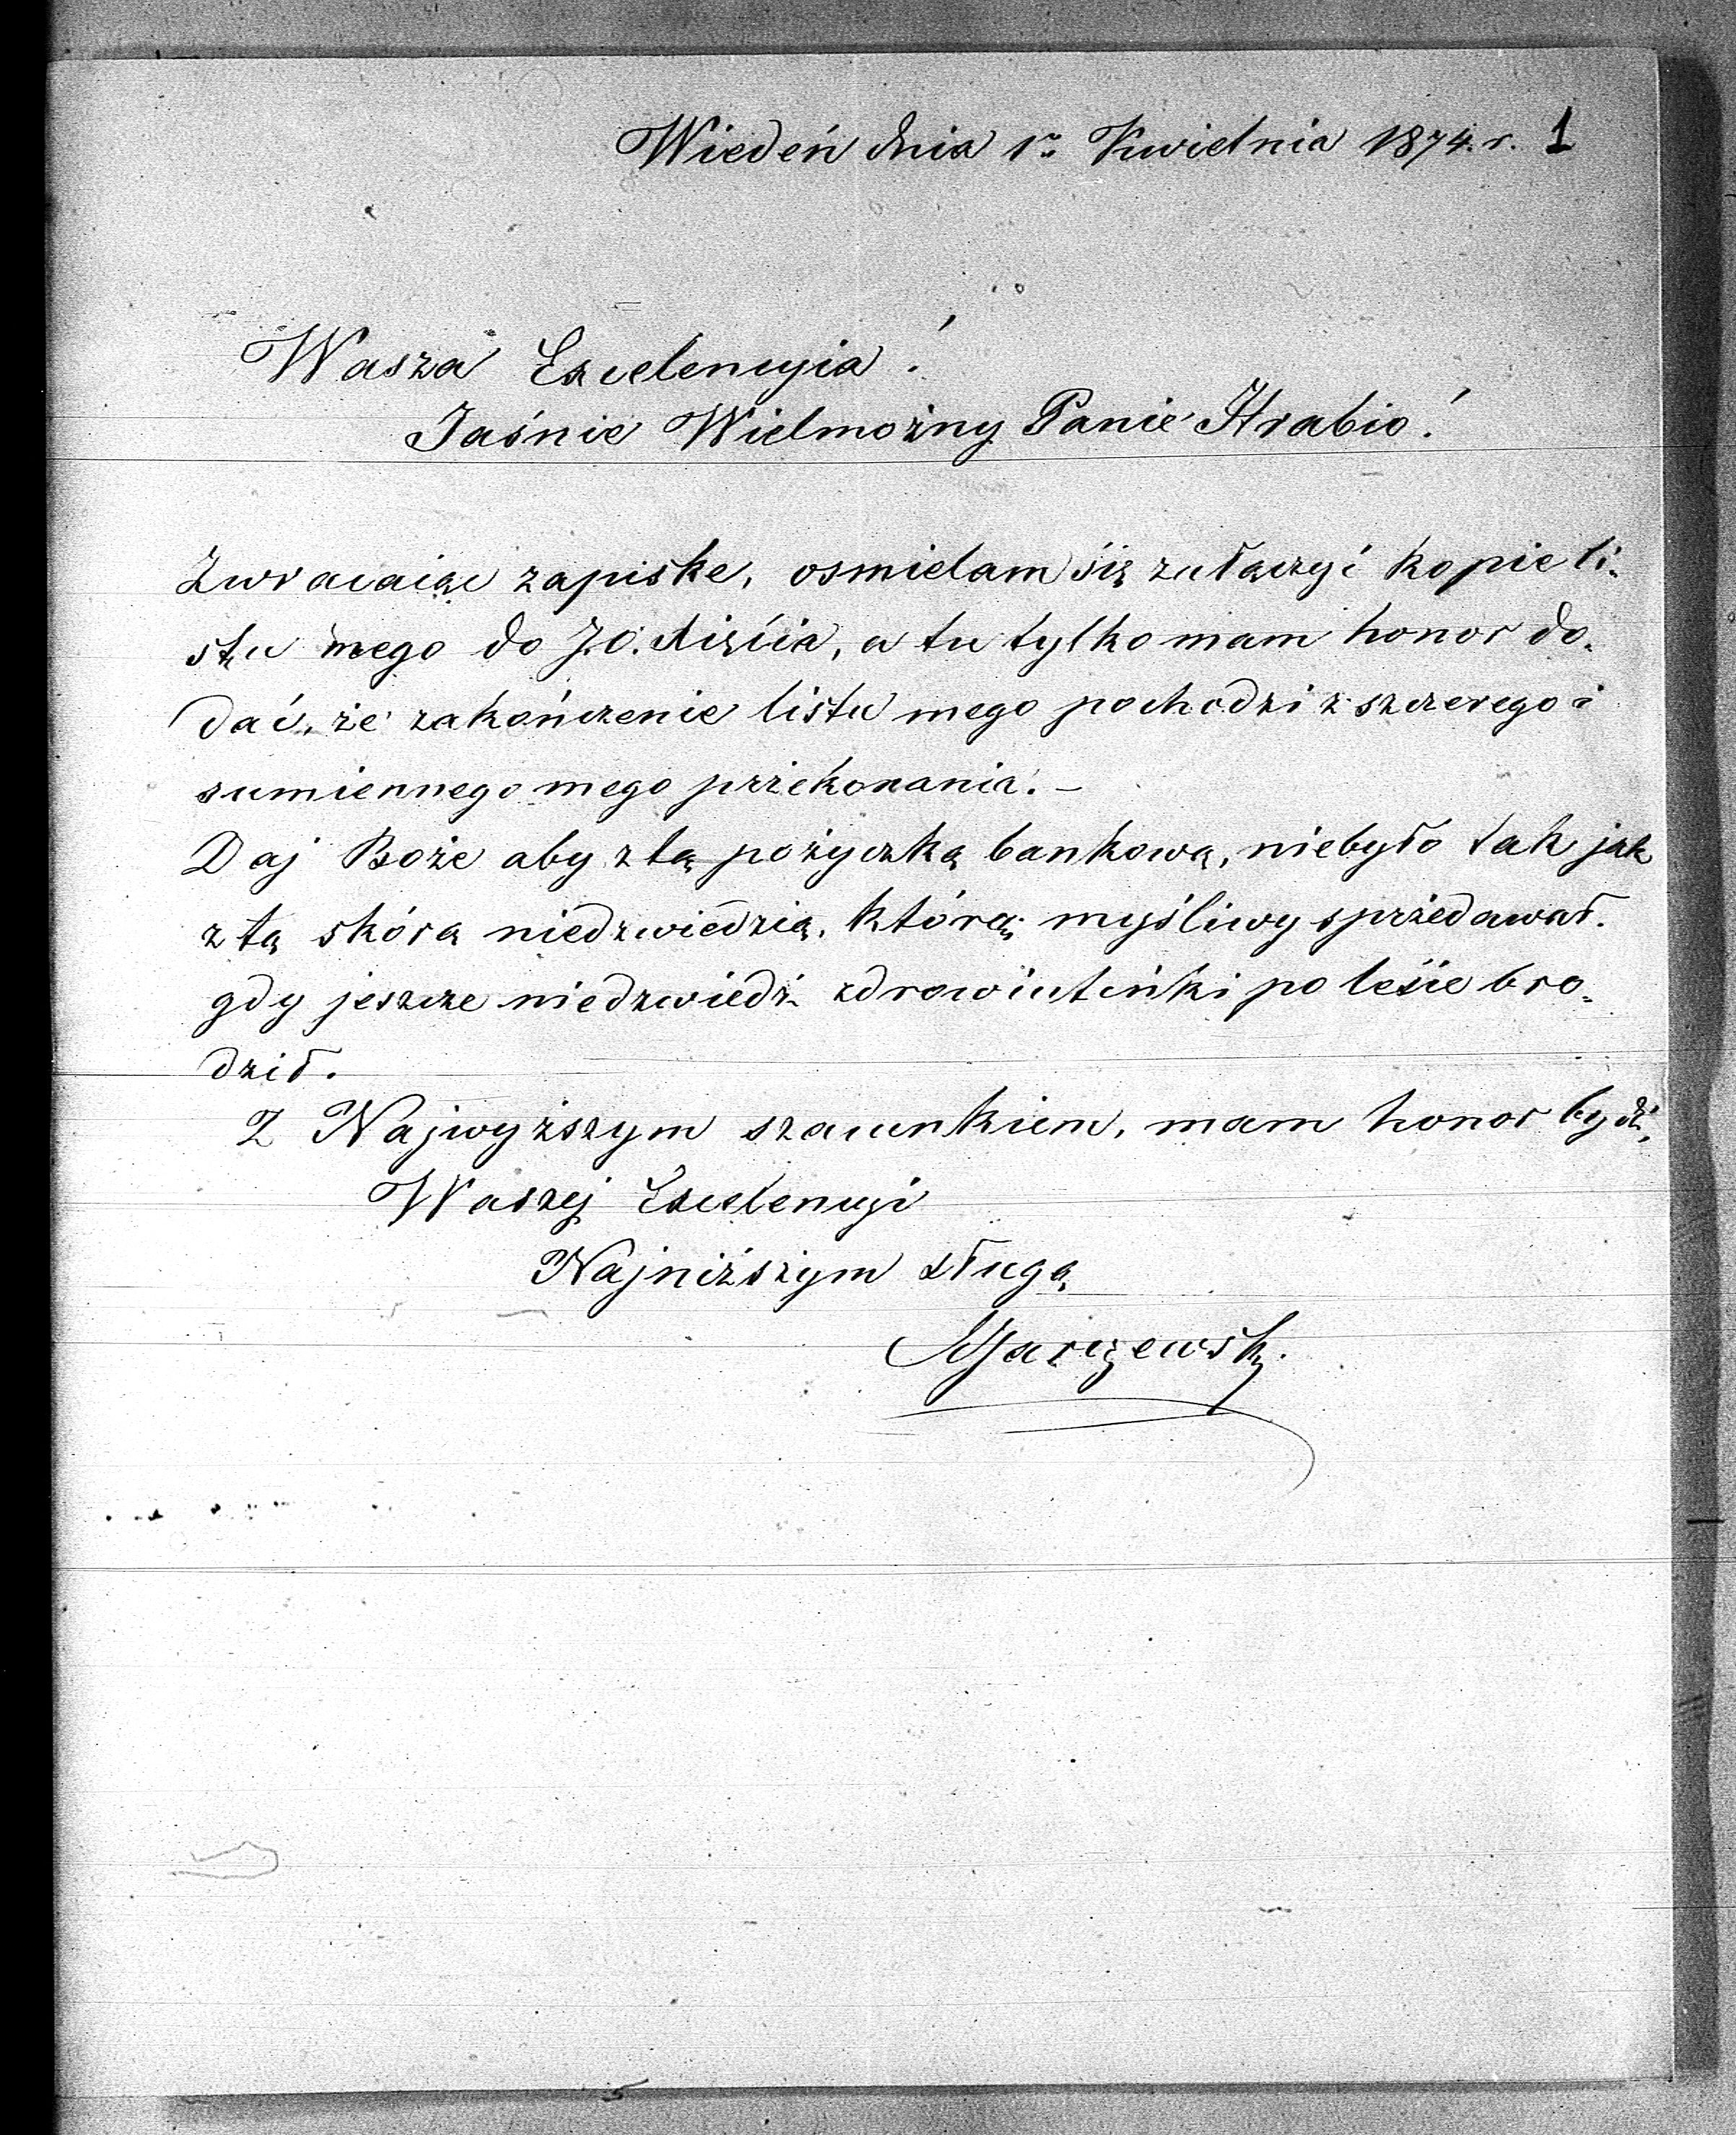 Wiedeń dnia 1º Kwietnia 1874. r. 1
Wasza Excelencyia!
Jaśnie Wielmożny Panie Hrabio!
Zwracaiąc zapiske, osmielam się załączyć kopie li-
stu mego do J.O. Xięcia, a tu tylko mam honor do-
dać, że zakończenie listu mego pochodzi z szczerego i
sumiennego mego przekonania. –
Daj Boże aby z tą pożyczką bankową, niebyło tak jak
z tą skórą niedzwiedzią, którą myśliwy sprzedawał.
gdy jeszcze niedzwiedź zdrowiuteńki po lesie bro-
dził.
Z Najwyższym szacunkiem, mam honor bydź,
Waszej Excelencyi
Najniższym sługą